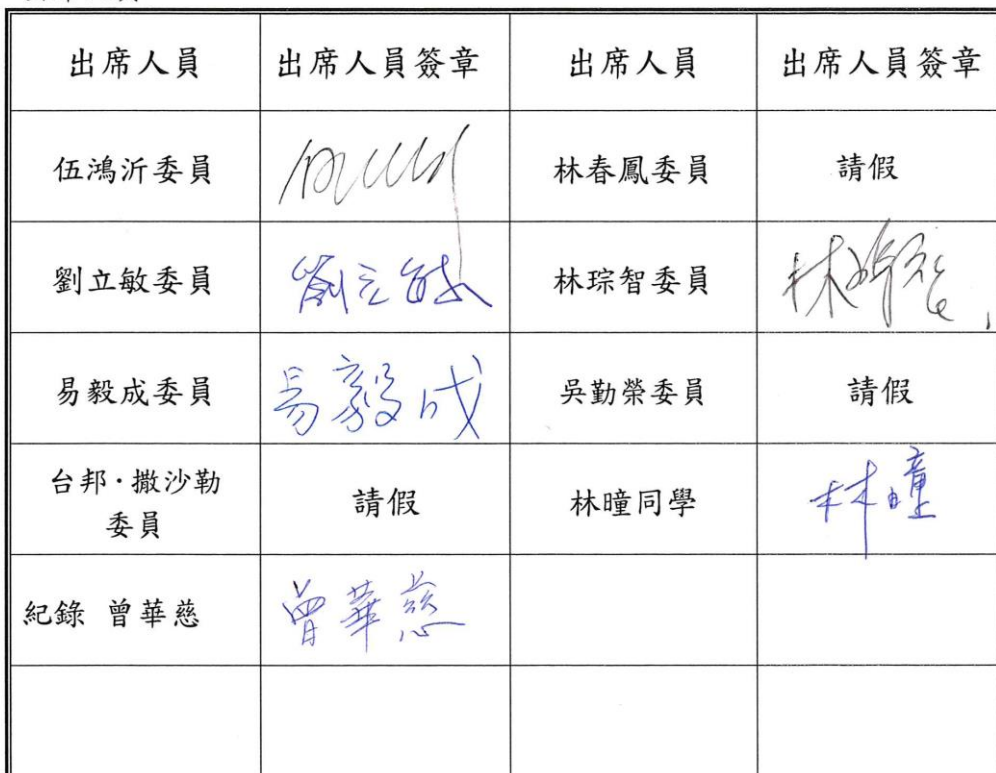 出席人員 出席人員簽章 出席人員 出席人員簽章
伍鴻沂委員 林春鳳委員 請假
劉立敏委員 劉立敏 林琮智委員 林琮智
易毅成委員 易毅成 吳勤榮委員 請假
台邦·撒沙勒
委員 請假 林曈同學 林曈
紀錄 曾華慈 曾華慈